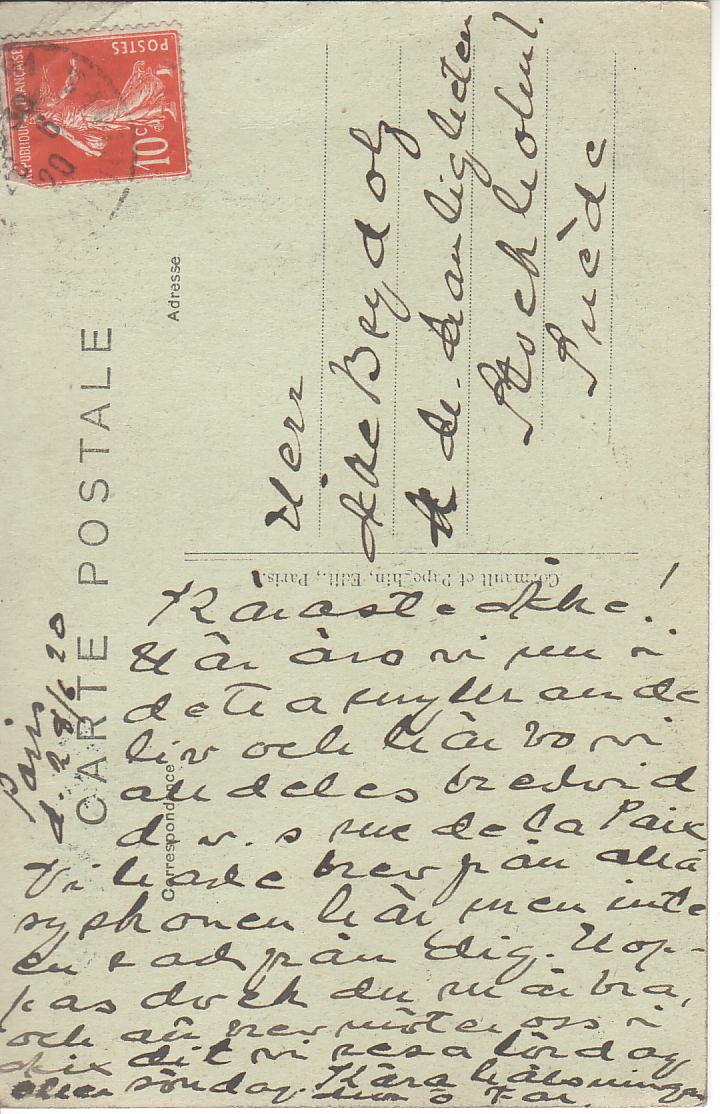 CARTE POSTALE
Correspondance
Adresse
RÉPUBLIQUE FRANÇAISE
POSTES
10c
20
Cormault et Papeghin, Edit., Paris.
Herr
Åke Beydolz
Stockholm.
Suède
Paris
d. 28/6 20
Käraste Åke!
Här äro vi nu i
detta myllrande
liv och här bo vi
alldeles bredvid
d.v.s rue de la Paix
Vi hade brev från alla
syskonen här men inte
en rad från dig. Hop-
pas dock du mår bra,
och att brev möter oss i
Aix dit vi resa lördag
eller söndag. Kära hälsningar
Far.